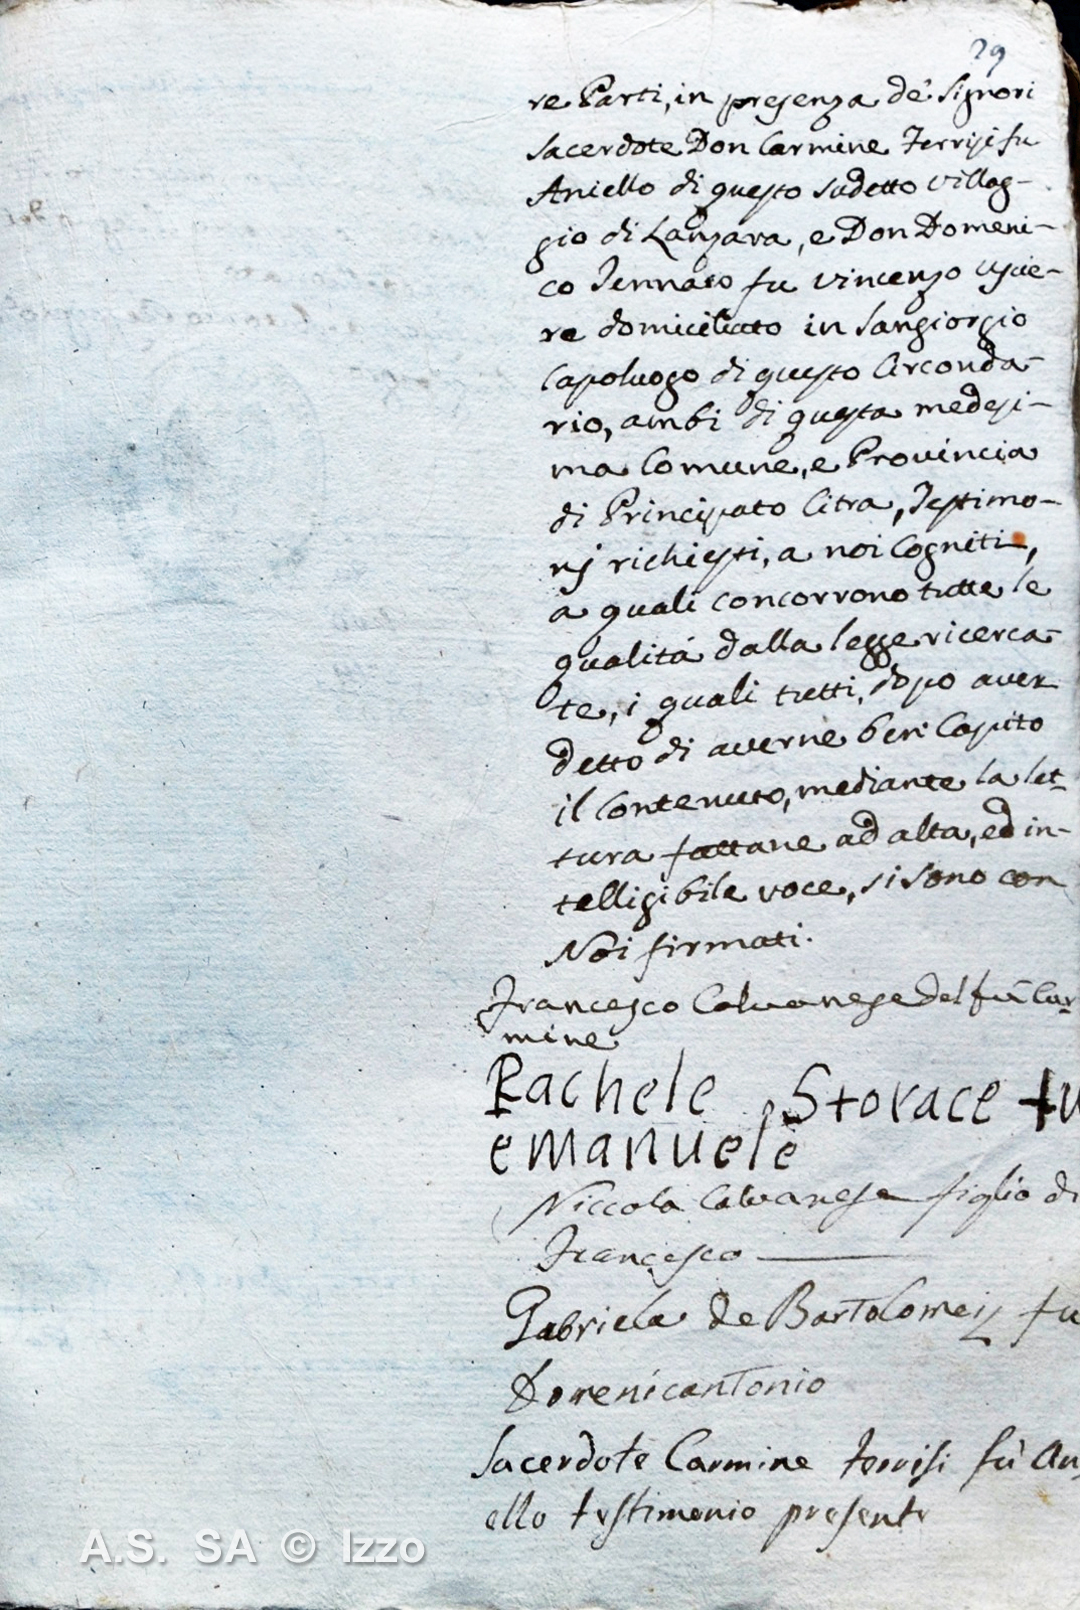 29
re Parti, in presenza de' Signori
Sacerdote Don Carmine Terrisi fu
Aniello di questo sudetto villag-
gio di Lanzara, e Don Domeni-
co Jennaco fu vincenzo uscie-
re domiciliato in Sangiorgio
Capoluogo di questo Circonda-
rio, ambi di questa medesi-
ma Comune, e Provincia
di Principato Citra, Testimo-
nj richiesti, a noi Cogniti,
a quali concorrono tutte le
qualitá dalla legge ricerca-
te, i quali tutti, dopo aver
detto di averne ben Capito
il Contenuto, mediante la let-
tura fattane ad alta, ed in-
telligibile voce, si sono con
Noi firmati.
Francesco Calvanese del fù Car-
mine
Rachele Storace fu
emanuele
Niccola Calvanese figlio di
Francesco
Gabriela de Bartolomeis fu
Domenicantonio
Sacerdote Carmine terrisi fù Ani
ello testimonio presente
A.S. SA © Izzo